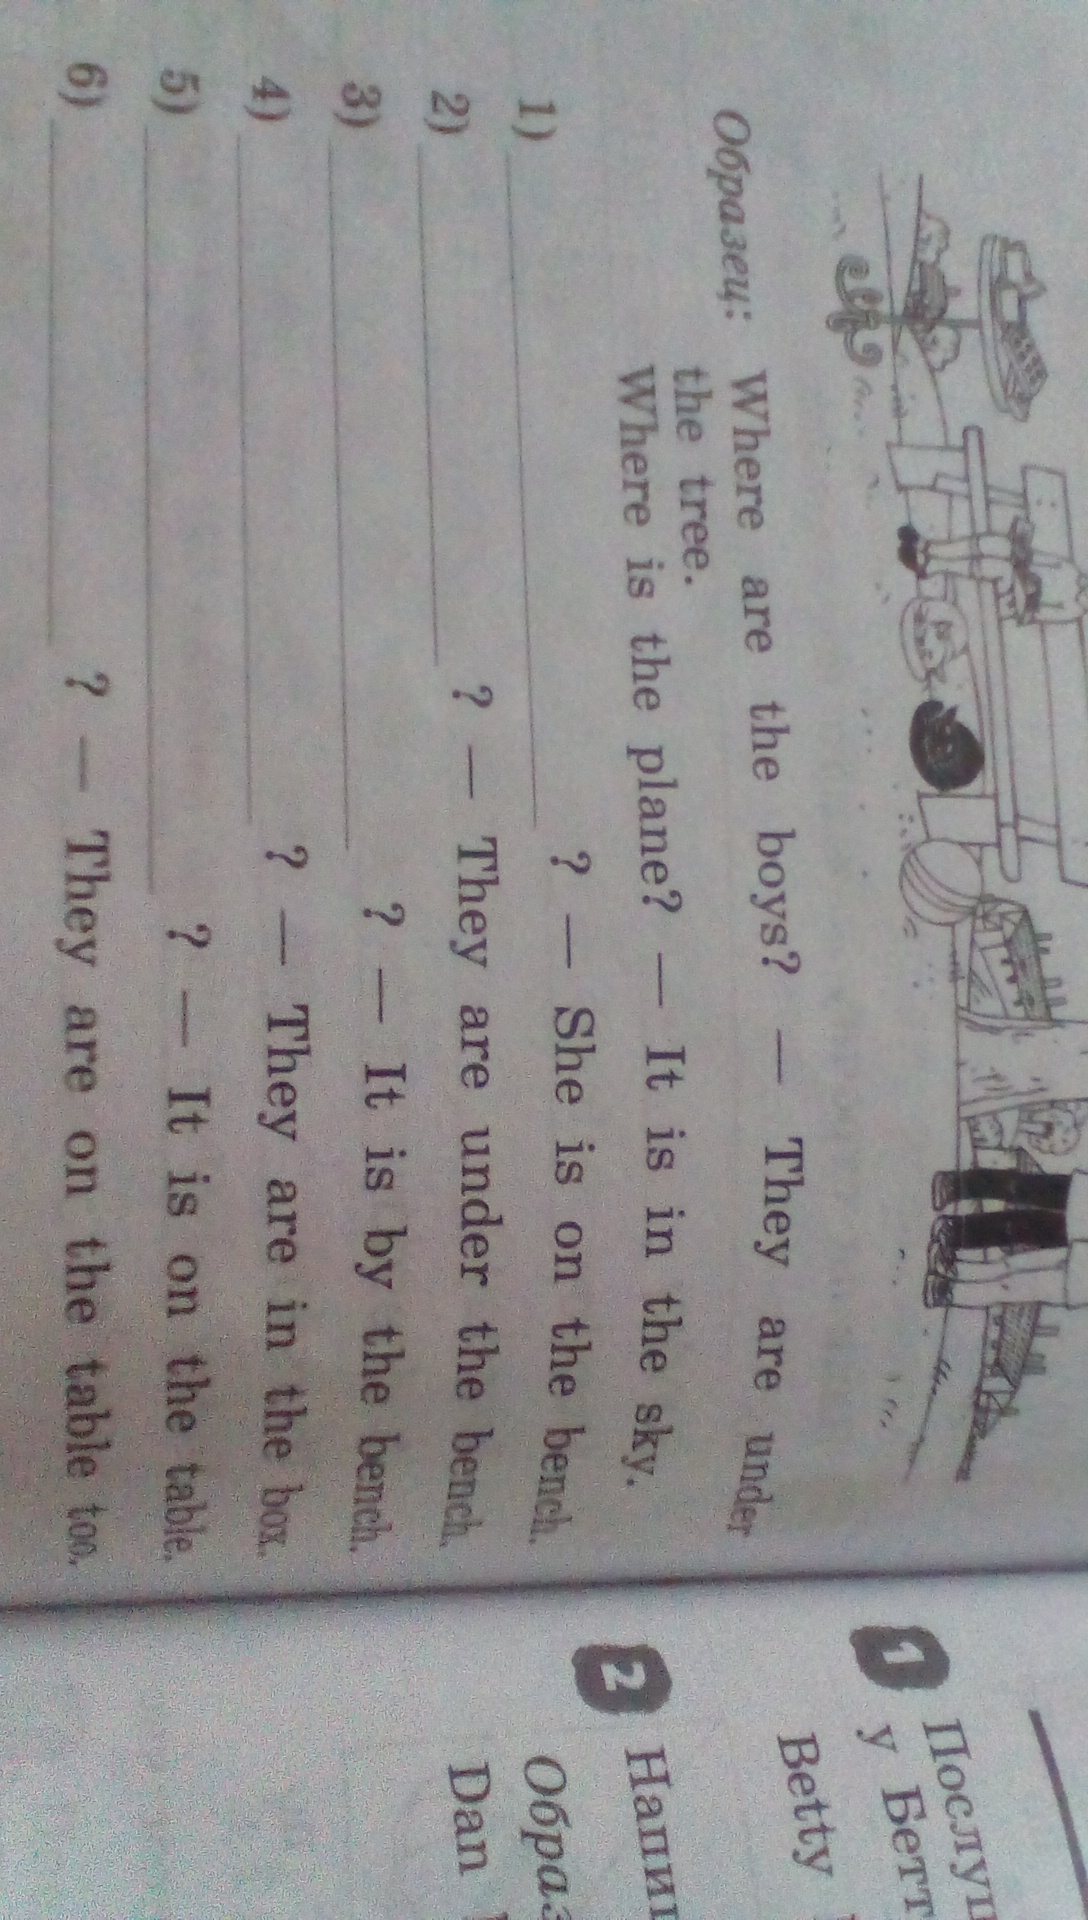 Образец: Where are the boys? — They are under
the tree.
Where is the plane? — It is in the sky.
1) ? — She is on the bench.
2) ? — They are under the bench.
3) ? — It is by the bench.
4) ? — They are in the box.
5) ? — It is on the table.
6) ? — They are on the table too.
1
у Бетт
Betty
2
Dan